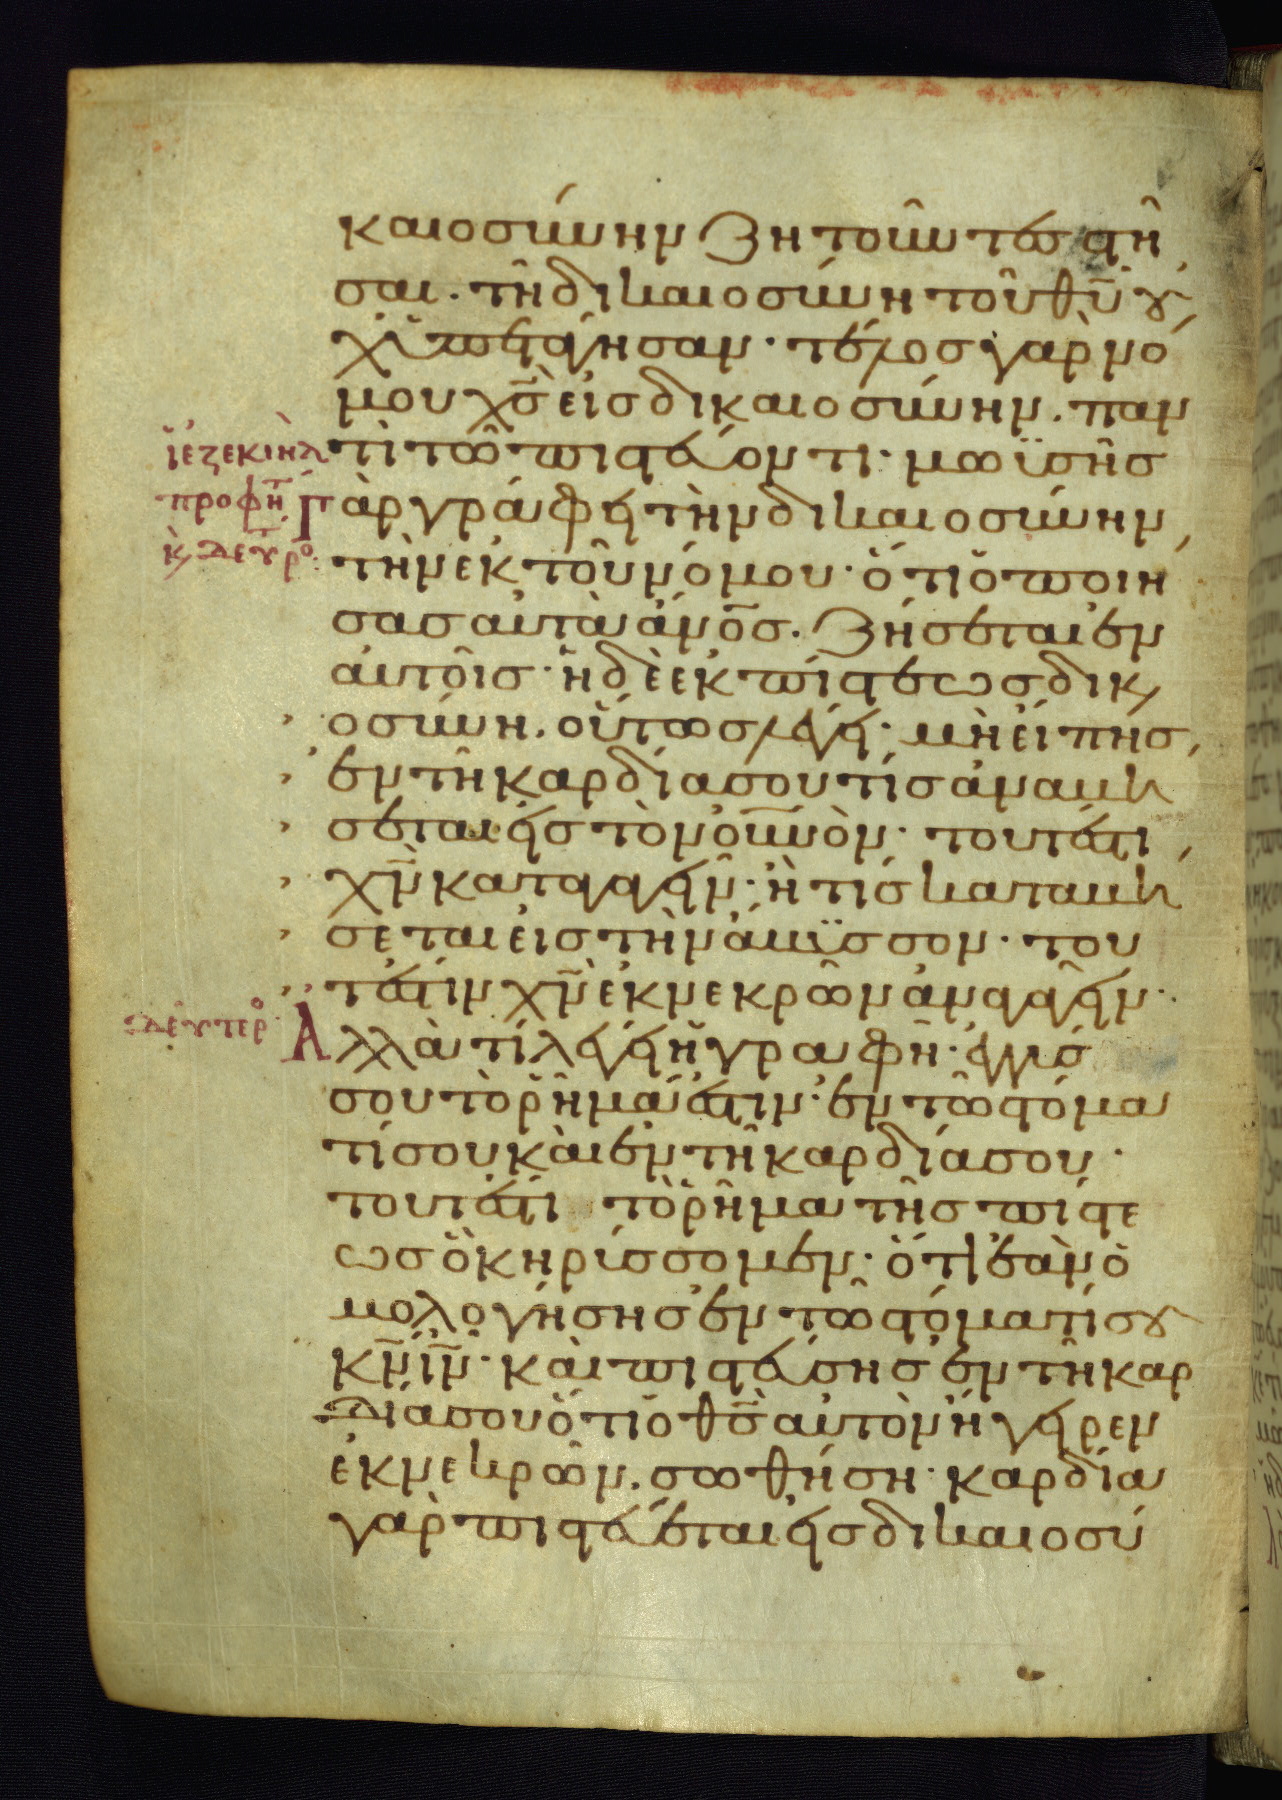 καιοσύνην ζητοῦντες στῆ
σαι. τῆ δικαιοσύνη τοῦ θ̅υ̅ ȣ
χ ὑπετάγησαν· τέλος γὰρ νό
μου χ̅ς̅ εἰς δικαιοσύνην. παν
ἰεζεκιὴλ
τὶ τῶ πιστεύοντι· μωϋσῆς
προφήτ
γὰρ γράφει τὴν δικαιοσύνην
κ, δευτρο:
τὴν ἐκ τοῦ νόμου· ὅτι ὁ ποιή
σας αὐτὰ α̅ν̅ο̅ς̅. ζήσεται ἐν
αὐτοῖς· ἡ δὲ ἐκ πίστεως δικ,
οσύνη. οὕτως λέγει· μὴ εἴπης,
ἐν τῆ καρδία σου τίς ἀναβή
σεται εἰς τὸν ο̅υ̅ν̅ὸν· τουτέστι,
χ̅ν̅ καταγαγεῖν· ἢ τίς καταβή
σεται εἰς τὴν ἄβυσσον· του
τέστιν χ̅ν̅ ἐκ νεκρῶν ἀναγαγεῖν·
δευτερο
Ἀλλὰ τί λέγει ἡ γραφή· ἐγγύς
σου τὸ ῥῆμά ἐστιν· ἐν τῶ στόμα
τί σου καὶ ἐν τῆ καρδία σου·
τουτέστι τὸ ῥῆμα τῆς πίστε
ως ὃ κηρύσσομεν· ὅτι ἐὰν ὁ
μολογήσης ἐν τῶ στόματί σȣ
κ̅ν̅ ι̅ν̅· καὶ πιστεύσης ἐν τῆ καρ
δία σου ὅτι ὁ θ̅ς̅ αὐτὸν ἤγειρεν
ἐκ νεκρῶν. σωθήση· καρδία
γὰρ πιστεύεται εἰς δικαιοσύ